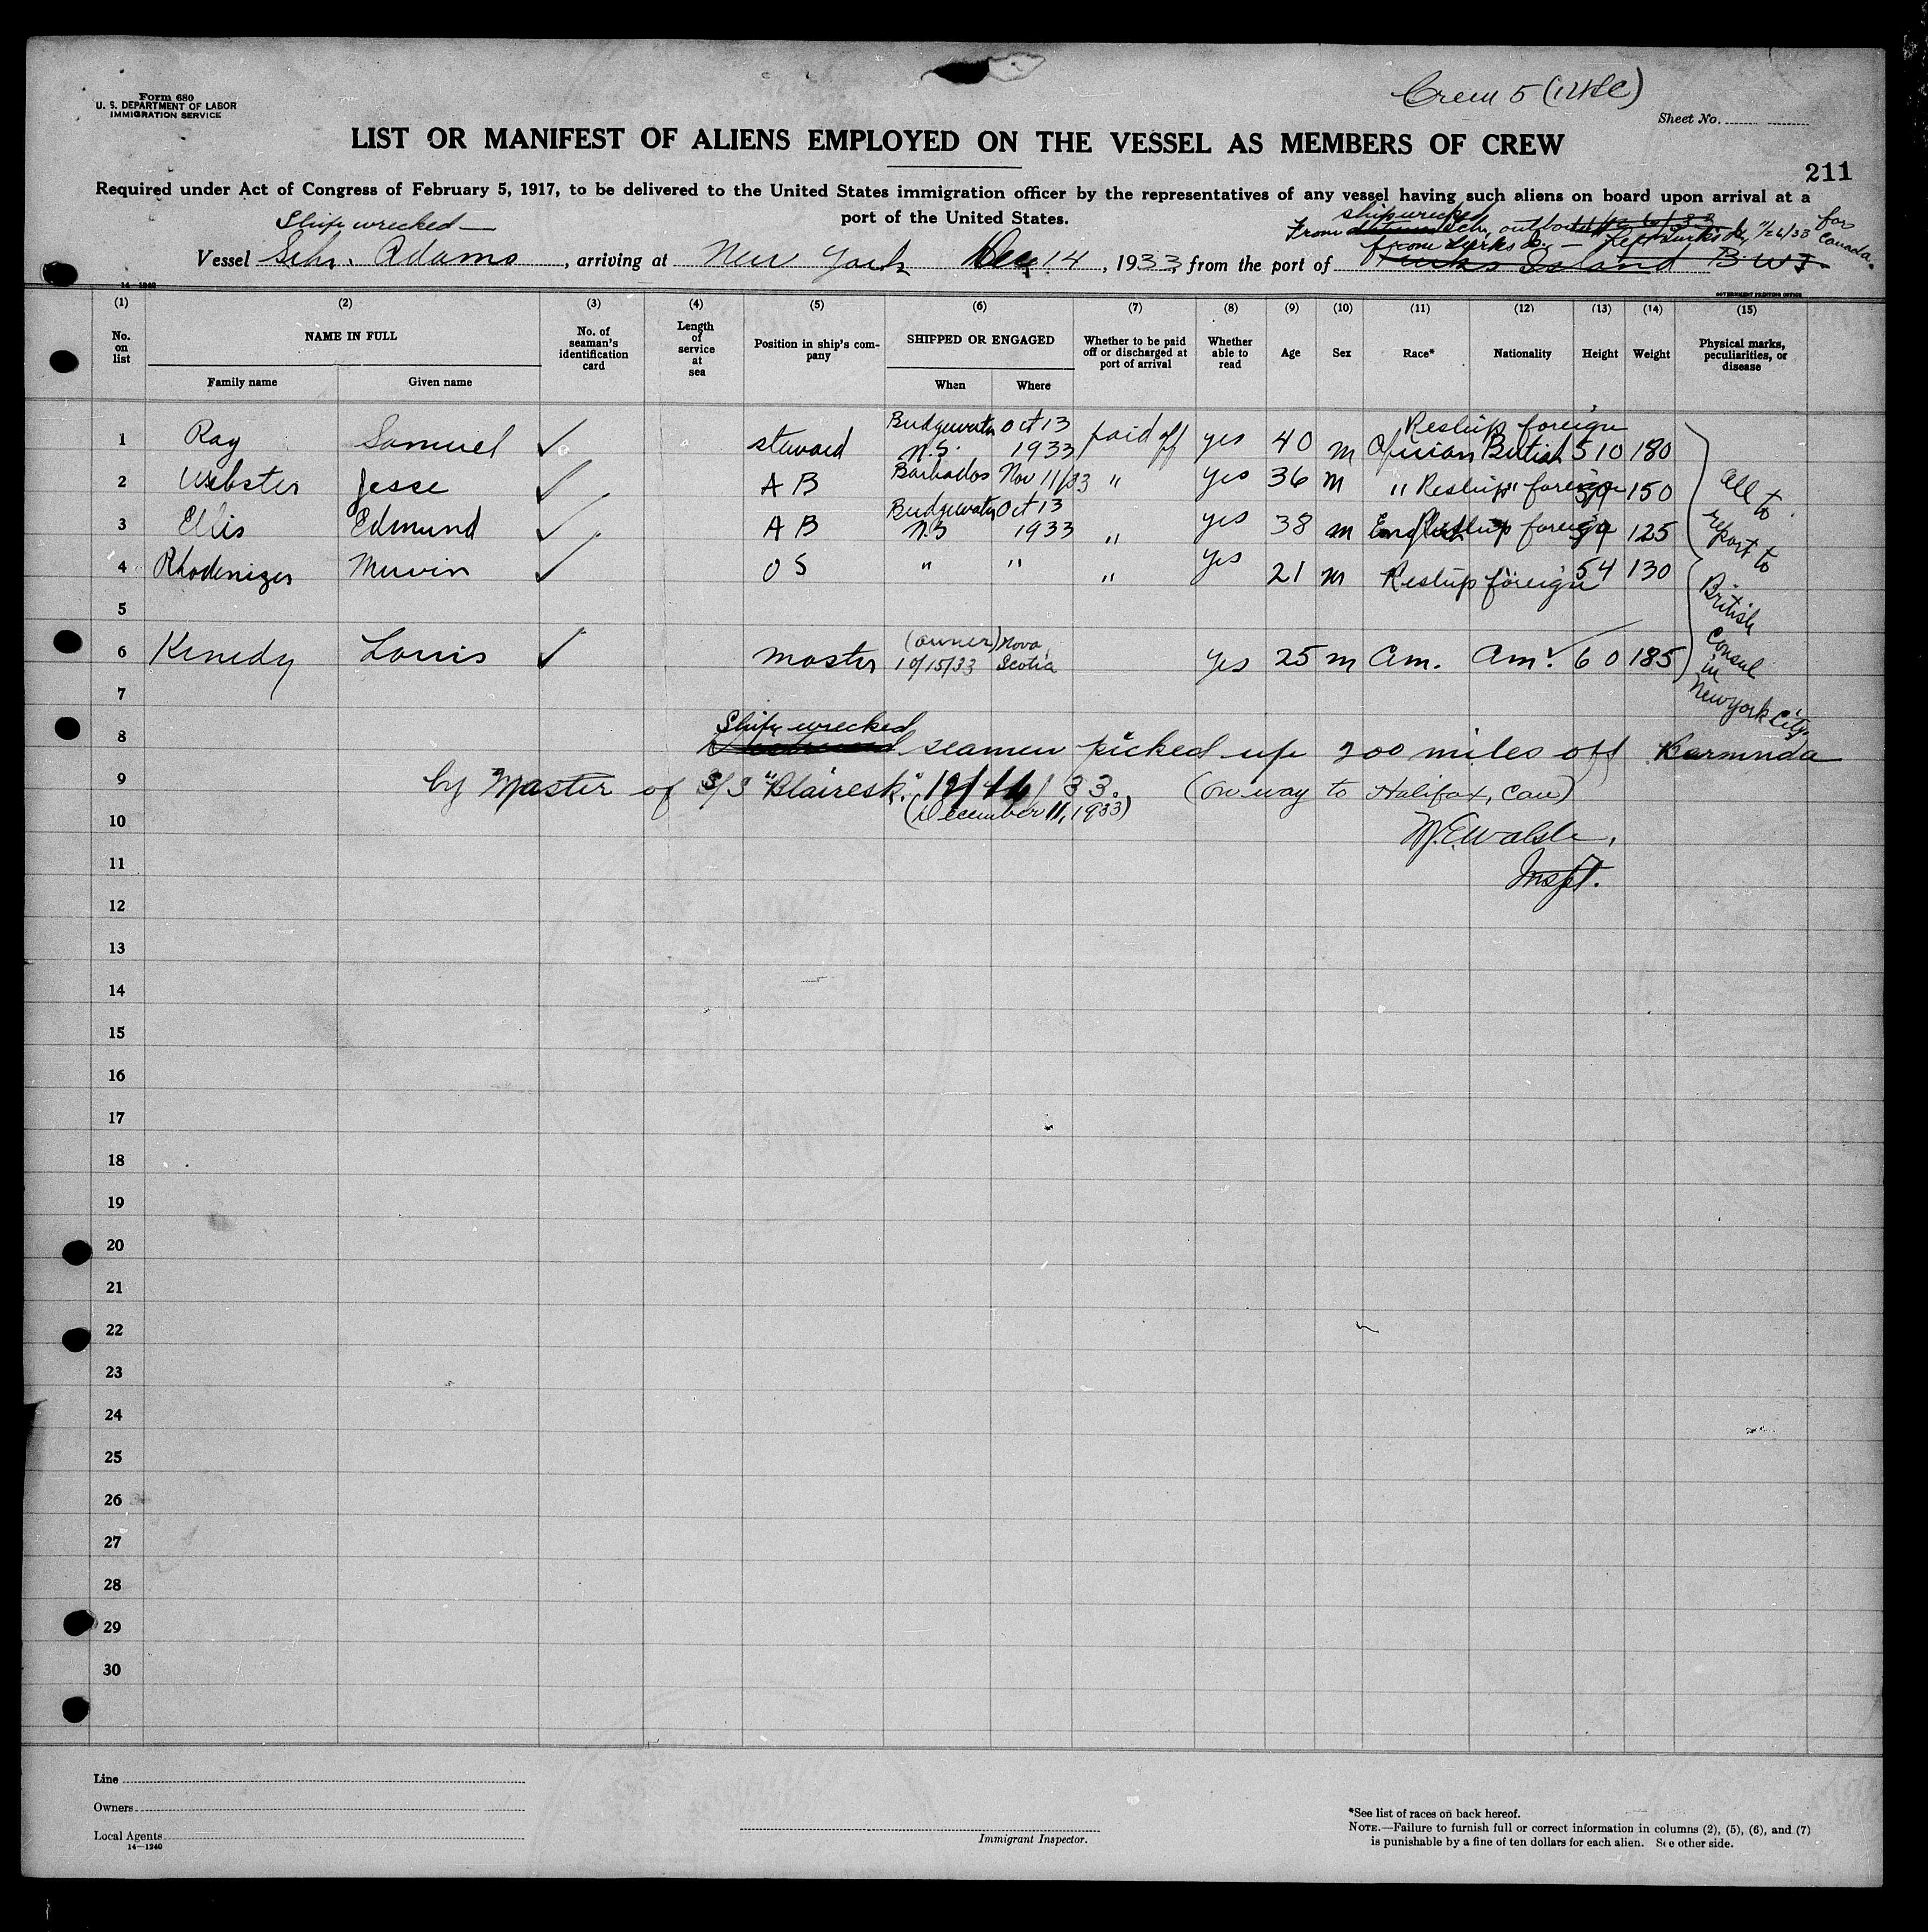 Form 680
U. S. DEPARTMENT OF LABOR
IMMIGRATION SERVICE
Crew 5
Sheet No.
LIST OR MANIFEST OF ALIENS EMPLOYED ON THE VESSEL AS MEMBERS OF CREW
211
Required under Act of Congress of February 5, 1917, to be delivered to the United States immigration officer by the representatives of any vessel having such aliens on board upon arrival at a
port of the United States.
Ship wrecked —
shipwrecked
From Sch. outbound 11/26/33 for
from Turks Is. — Left Turks Is. Canada.
Vessel Schr. Adams, arriving at New York Dec 14, 1933, from the port of Turks Island B.W.I.
14—1240
GOVERNMENT PRINTING OFFICE
(1) (2) (3) (4) (5) (6) (7) (8) (9) (10) (11) (12) (13) (14) (15)
No. on list NAME IN FULL No. of seaman's identification card Length of service at sea Position in ship's company SHIPPED OR ENGAGED Whether to be paid off or discharged at port of arrival Whether able to read Age Sex Race* Nationality Height Weight Physical marks, peculiarities, or disease
Family name Given name When Where
Reship foreign
1 Ray Samuel ✓ steward Bridgewater N.S. Oct 13 1933 paid off yes 40 m African British 5 10 180
2 Webster Jesse ✓ A B Barbados Nov 11/33 " yes 36 m " Reship " foreign 150
3 Ellis Edmund ✓ A B Bridgewater N.S. Oct 13 1933 " yes 38 m English Reship foreign 125
4 Rhodenizer Mervin ✓ O S " " " yes 21 m Reship foreign 5 4 130
5
6 Kenedy Louis ✓ master (owner) 10/15/33 Nova Scotia yes 25 m Am. Am. ✓ 6 0 185
All to
report to
British
Consul
in
New York City
7
8 Ship wrecked seamen picked up 200 miles off Barmuda
9 by Master of S/S "Blairesk." 12/11/33. (on way to Halifax, Can)
10 (December 11, 1933)
W.E. Walsh,
11 Inspt.
12
13
14
15
16
17
18
19
20
21
22
23
24
25
26
27
28
29
30
Line
Owners
Local Agents
14—1240
Immigrant Inspector.
*See list of races on back hereof.
NOTE.—Failure to furnish full or correct information in columns (2), (5), (6), and (7)
is punishable by a fine of ten dollars for each alien. See other side.